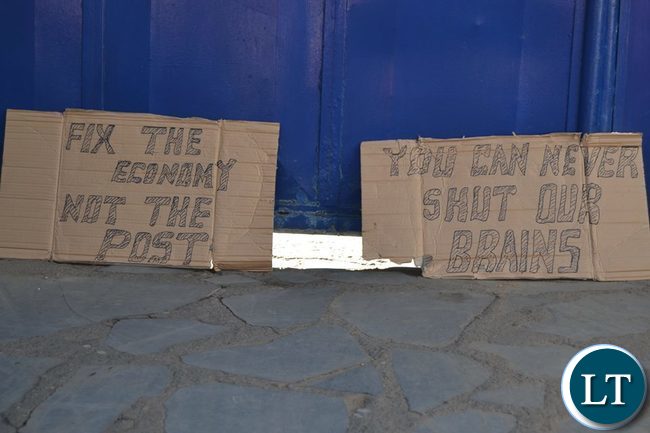 FIX THE
ECONOMY
NOT THE
POST
YOU CAN NEVER
SHUT OUR
BRAINS
LT